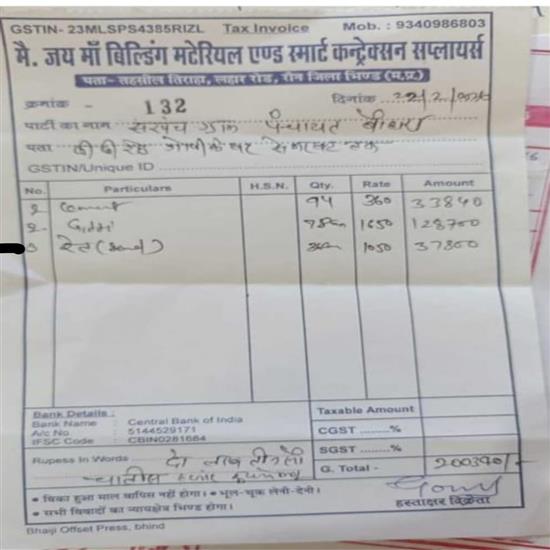 GSTIN- 23MLSPS4385RIZL Tax Invoice Mob. : 9340986803
मै. जय माँ बिल्डिंग मटेरियल एण्ड स्मार्ट कन्ट्रेक्सन सप्लायर्स
पता- तहसील तिराहा, लहार रोड, रौन जिला भिण्ड (म.प्र.)
क्रमांक - 132 दिनांक
पार्टी का नाम सरपंच ग्राम पंचायत
पता
GSTIN/Unique ID
No. Particulars H.S.N. Qty. Rate Amount
Cement 94 360 33840
2- 1650 128700
रेत (Sand) 1050 37800
Bank Details :
Bank Name : Central Bank of India
A/c No. : 5144529171
IFSC Code : CBIN0281664
Taxable Amount
CGST ........%
SGST ........%
Rupess in Words दो लाख
चालीस
G. Total - 200340/-
• बिका हुआ माल वापिस नहीं होगा। • भूल-चूक लेनी-देनी।
• सभी विवादों का न्यायक्षेत्र भिण्ड होगा।
हस्ताक्षर विक्रेता
Bhaiji Offset Press, bhind